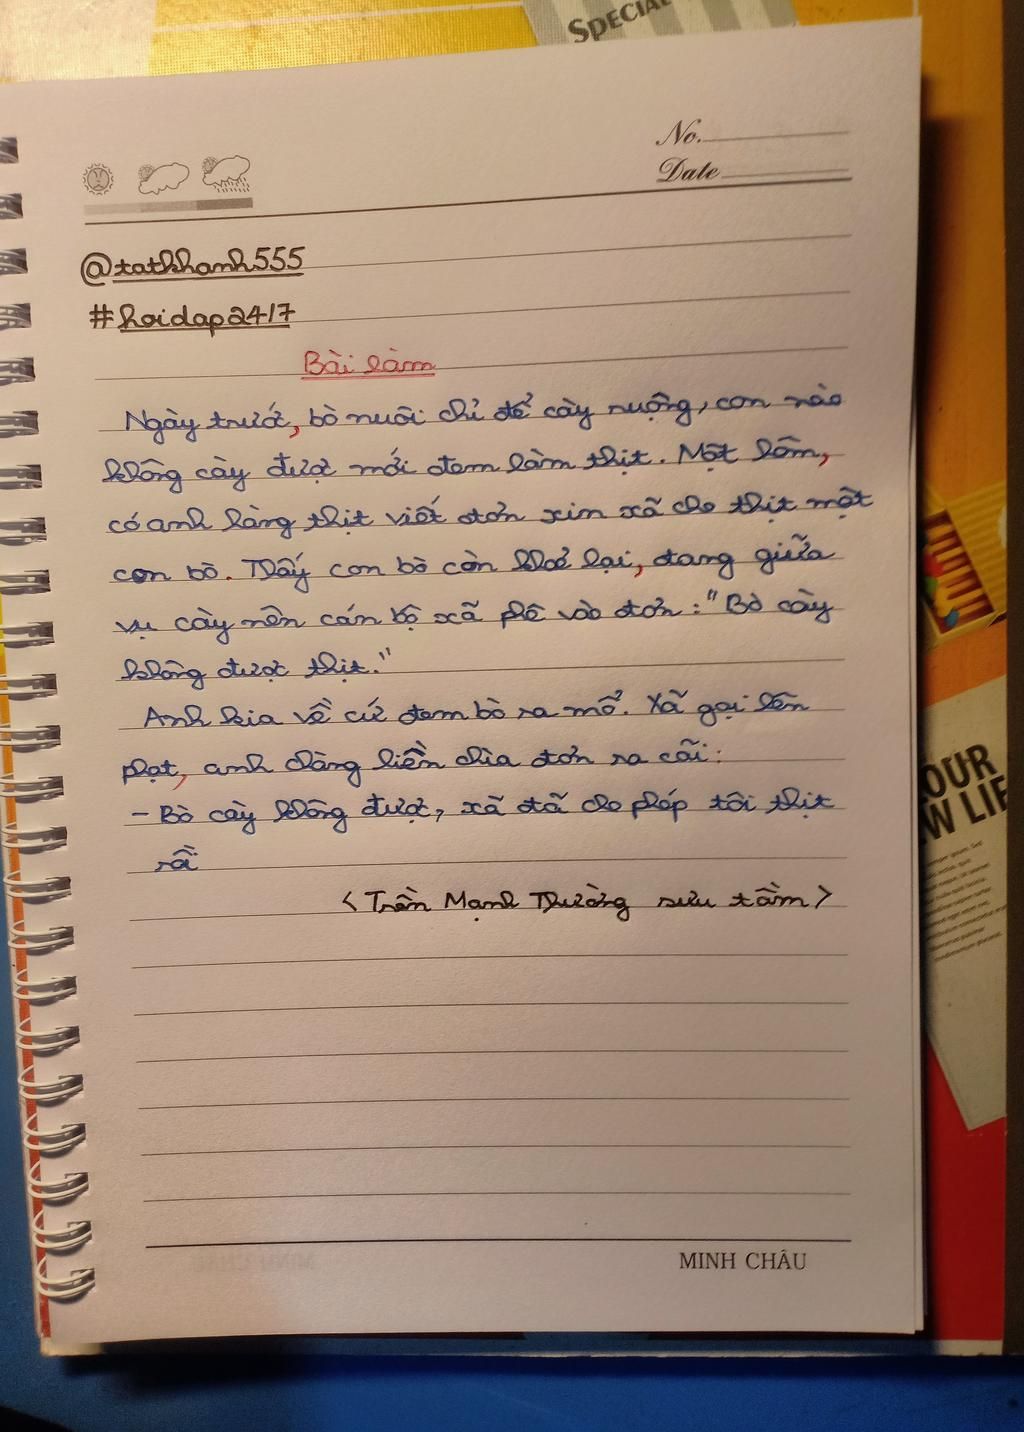 SPECIAL
No.
Date
@tatkhanh555
#hoidap24/7
Bài làm
Ngày trước, bò nuôi chỉ để cày ruộng, con nào
không cày được mới đem làm thịt. Một lôm,
có anh hàng thịt viết đơn xin xã cho thịt một
con bò. Thấy con bò còn khoẻ lại, đang giữa
vụ cày nên cán bộ xã phê vào đơn: "Bò cày
không được thịt."
Anh kia về cứ đem bò ra mổ. Xã gọi lên
phạt, anh chàng liền chìa đơn ra cãi:
- Bò cày không được, xã đã cho phép tôi thịt
rồi
<Trần Mạnh Thường sưu tầm>
OUR
W LIF
MINH CHÂU